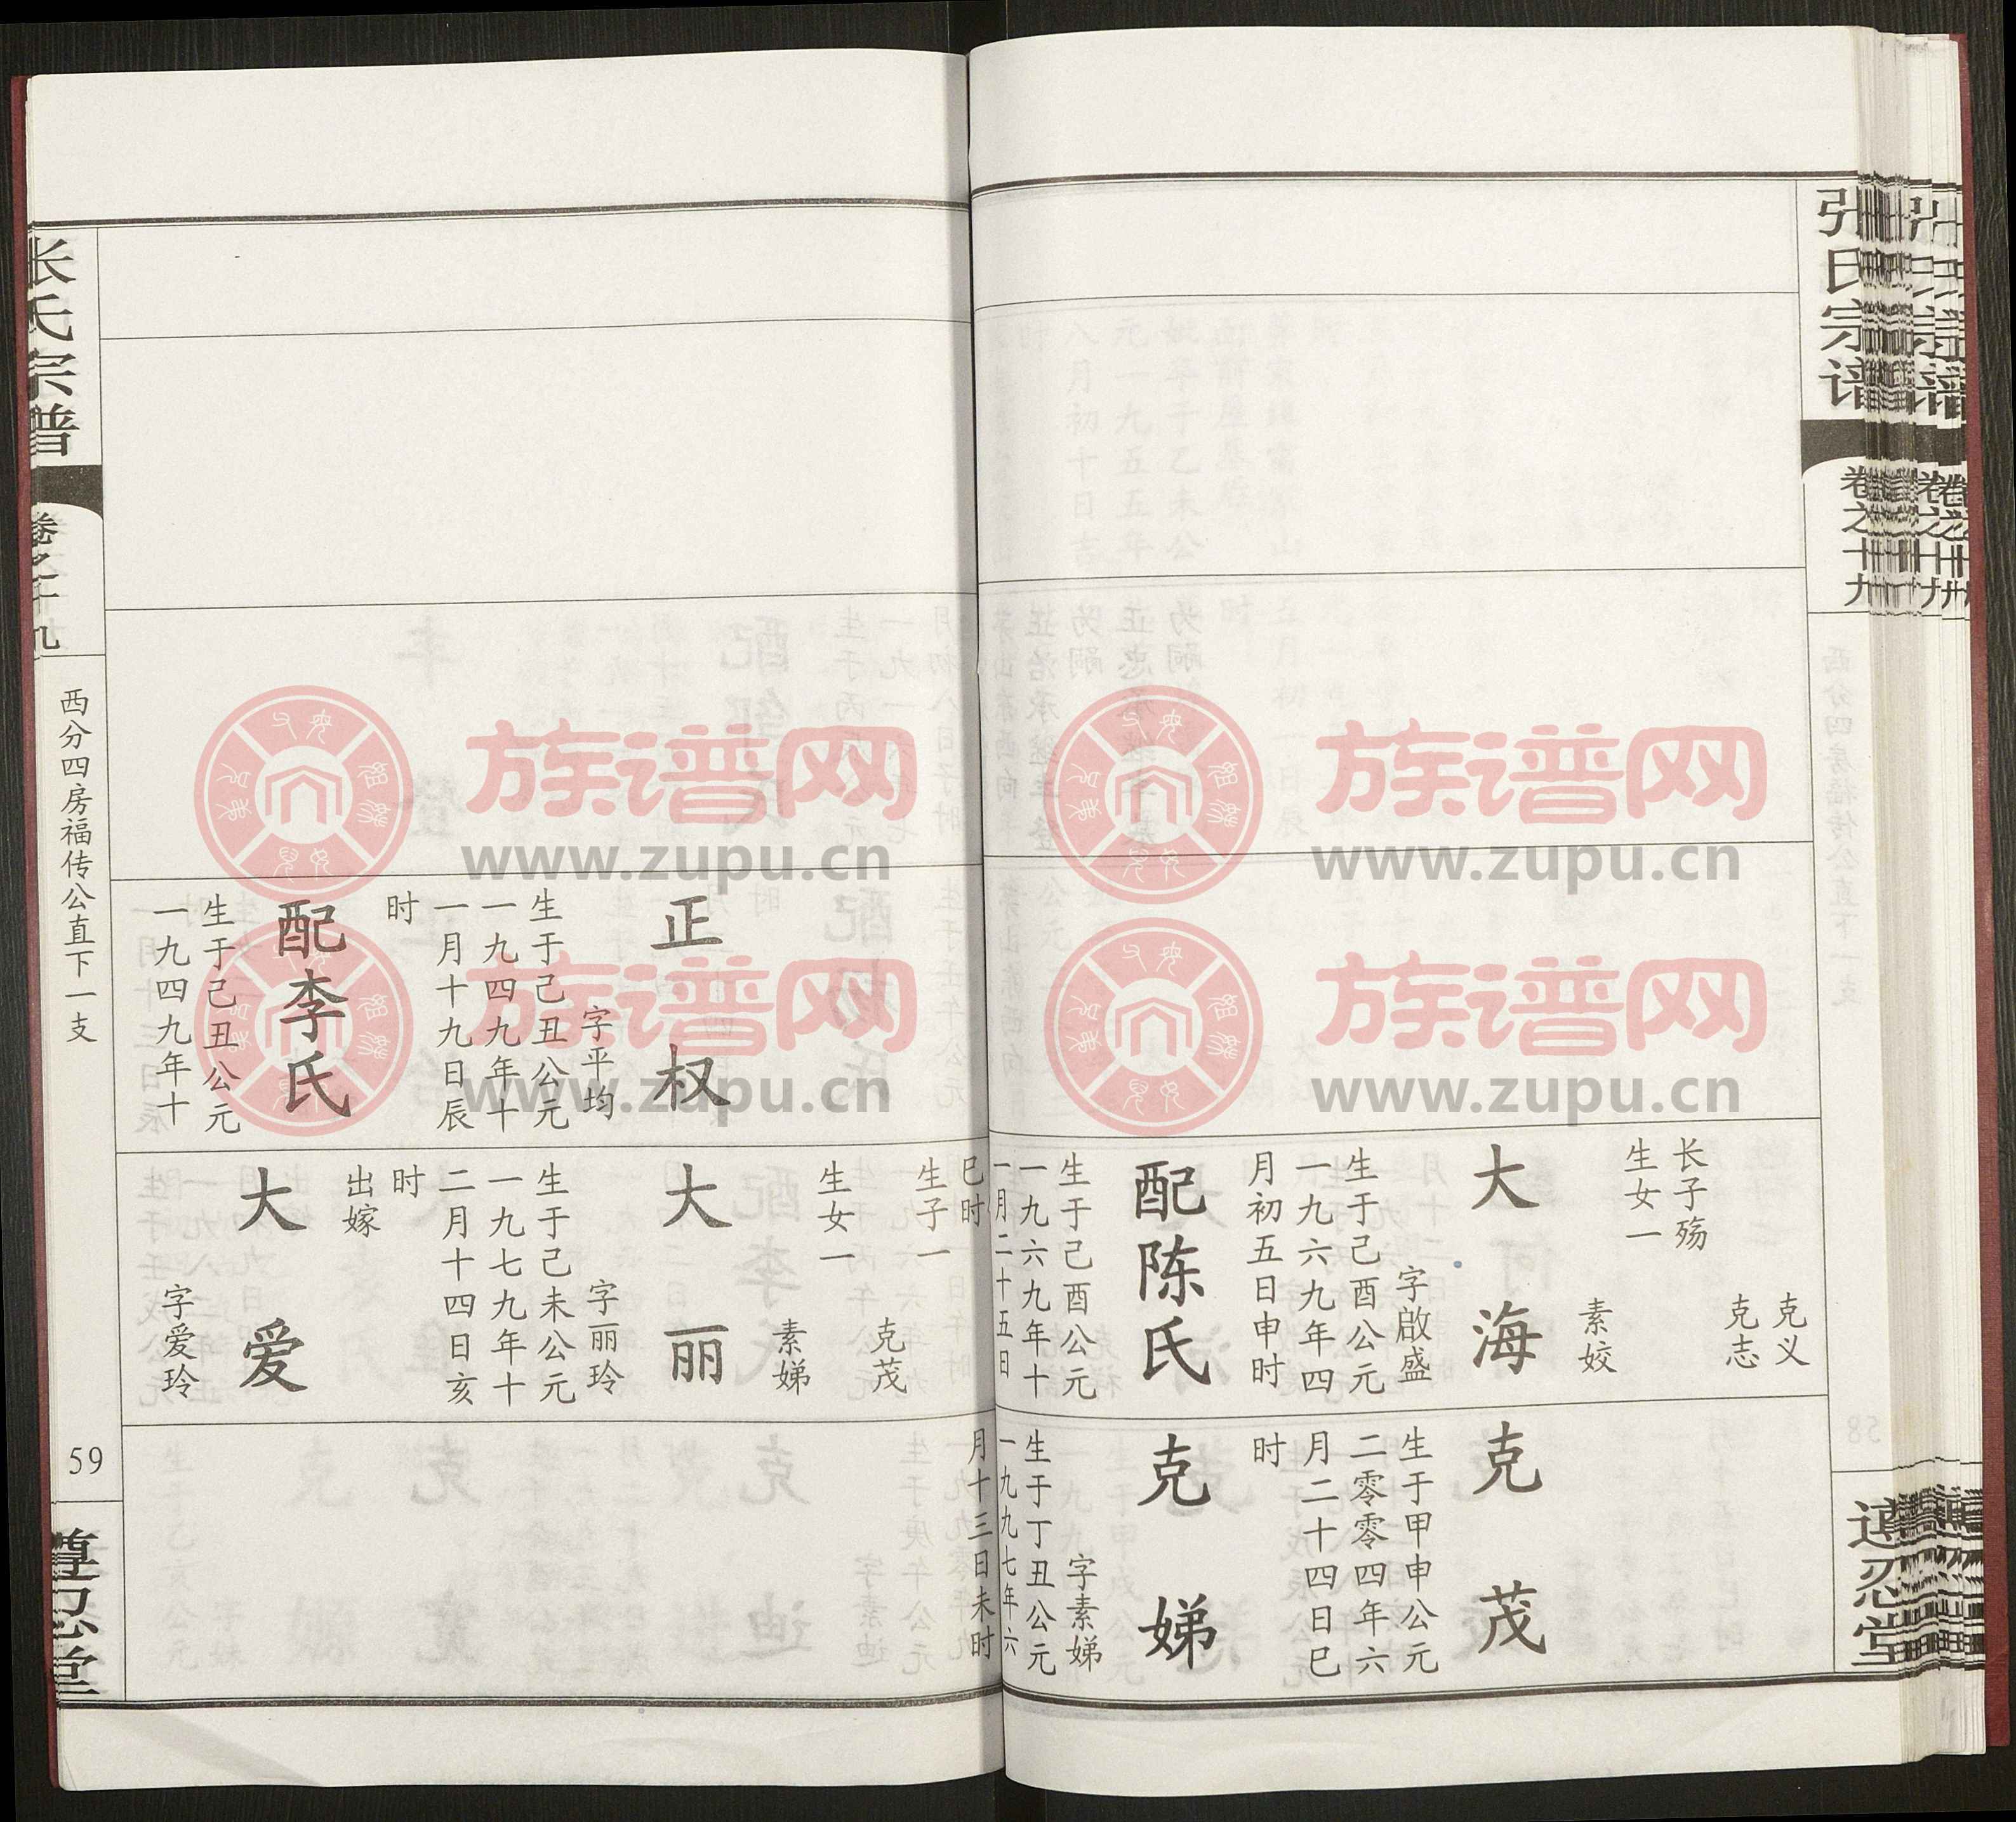 张氏宗谱
卷之十九
克义
克志
长子殇
生女一
素姣
大海
字啟盛
生于己酉公元
一九六九年四
月初五日申时
配陈氏
生于己酉公元
一九六九年十
一月二十五日
巳时
生子一
克茂
生女一
素娣
大丽
字丽玲
生于己未公元
一九七九年十
二月十四日亥
时
出嫁
大爱
字爱玲
克茂
生于甲申公元
二零零四年六
月二十四日巳
时
克娣
字素娣
生于丁丑公元
一九九七年六
月十三日未时
正权
字平均
生于己丑公元
一九四九年十
一月十九日辰
时
配李氏
生于己丑公元
一九四九年十
张氏宗谱
卷之十九
西分四房福传公直下一支
59
族谱网
www.zupu.cn
族谱网
www.zupu.cn
族谱网
www.zupu.cn
族谱网
www.zupu.cn